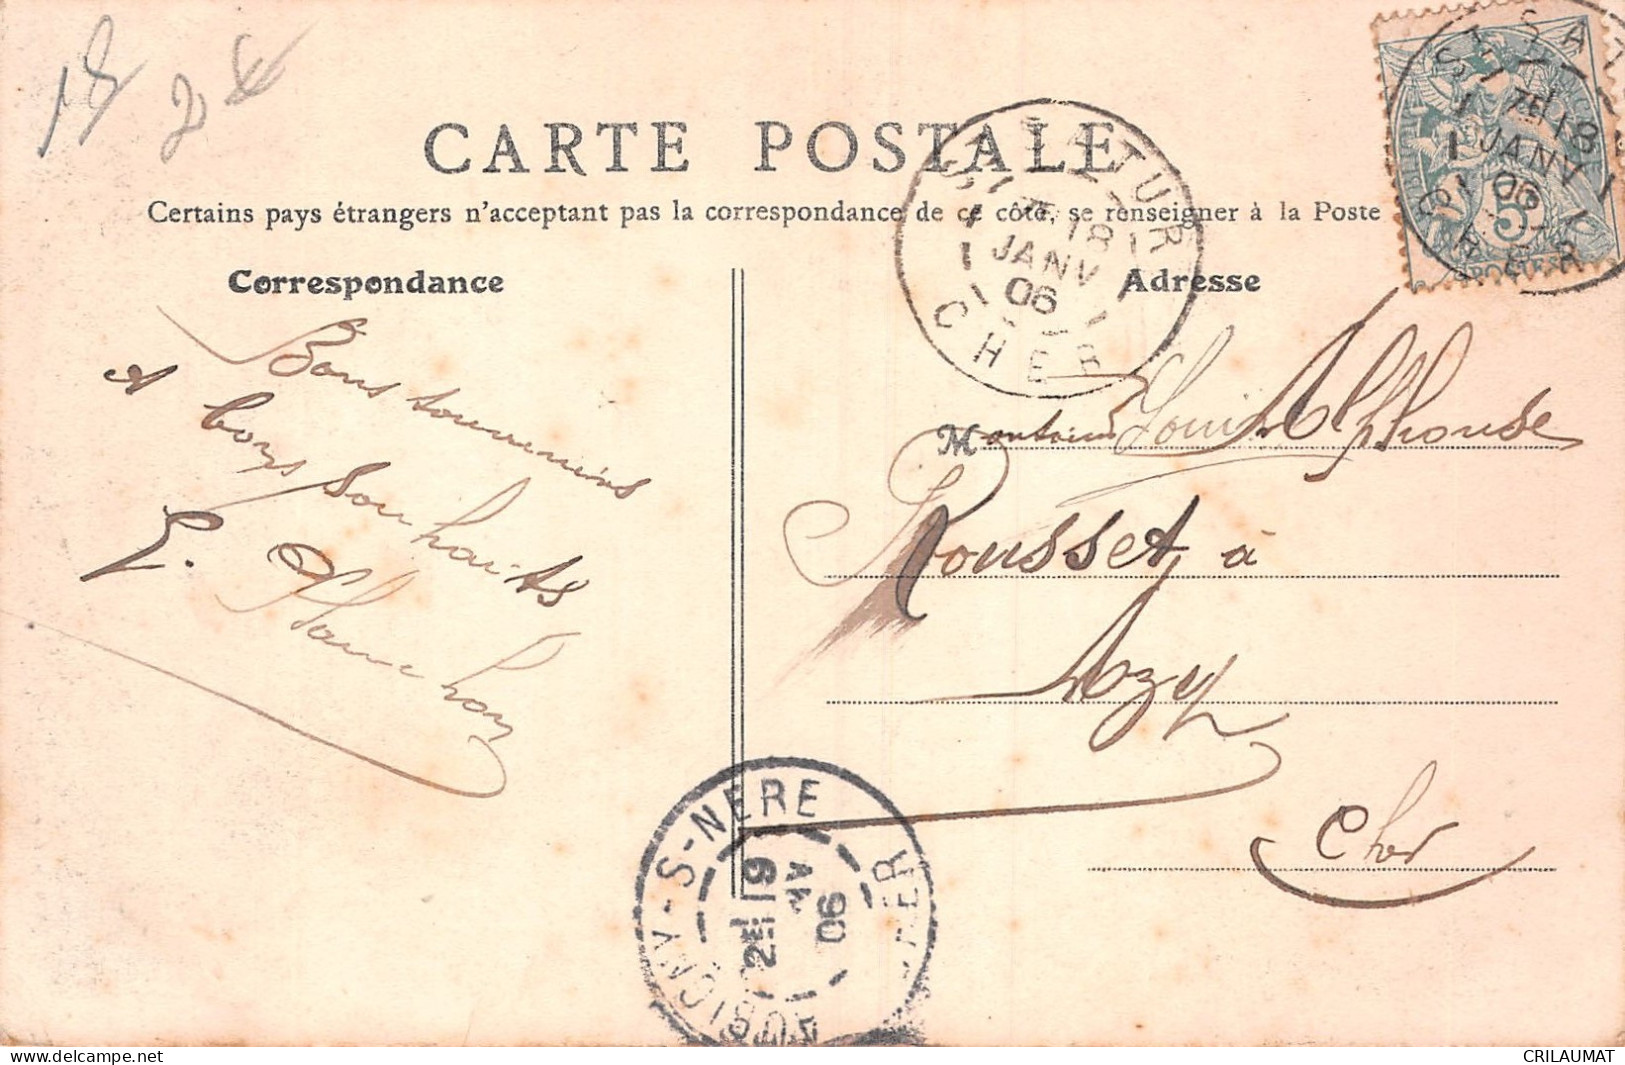 18
2
CARTE POSTALE
Certains pays étrangers n'acceptant pas la correspondance de ce côté, se renseigner à la Poste
Correspondance
Adresse
Bons souvenirs
et bons souhaits
E. Planchon
Monsieur Louis Alphonse
Rousset, à
Azy
Cher
ST SATUR
18
JANV
06
CHER
ST SATUR
18
JANV
06
CHER
5
POSTES
AUBIGNY-S-NERE
2E 19
JANV
06
CHER
CRILAUMAT